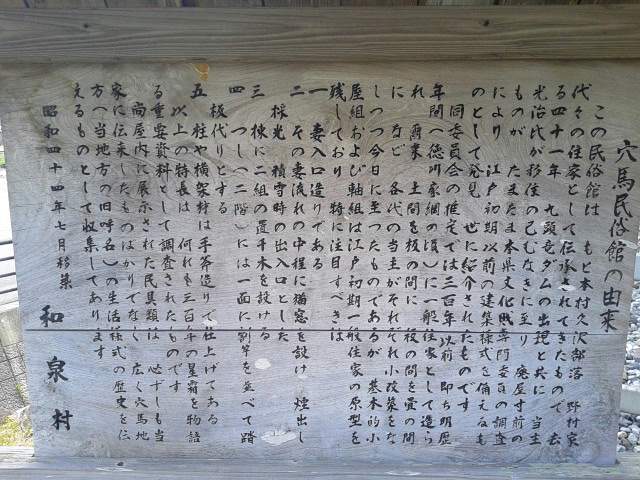 穴馬民俗館の由来
この民俗館は もと本村久沢部落 野村家
代々の住家として伝承されてきたもので 去
る四十一年 九頭竜ダムの出現と共に 当主
光治氏が移住の己むなきに至り 廃屋寸前の
ものが たまたま本県文化財専門委員の調査
により 江戸初期以前の建築様式を備えるも
のとして発見 世に紹介されたものです
同委員会の推定では三百年以前 即ち明暦
年間(徳川家綱の頃)に一般住家として造ら
れ 爾来 土間を板の間に 板の間を畳の間
に など 各代の当主がそれぞれ小改築をな
しつつ今日に至ったものであるが 基本的小
屋組および軸組は江戸初期一般住家の原型を
残しており 特に注目すべきは
一 妻入口造りである
二 その妻流れの中程に猫窓を設け 煙出し
採光 積雪時の出入口とした
三 棟に二組の置千木を設ける
四 つし(二階)には一面に割竿を並べて踏
板代りとする
五 柱や横架材は手斧造りで仕上げてある
以上の特長は 何れも三百年の星霜を物語
る重要資料として調査されたものです
尚屋内に展示された民具類は 必ずしも当
家に伝来したものばかりでなく 広く穴馬地
方(当地方の旧呼名)の生活様式の歴史を伝
えるものとして収集してあります
昭和四十四年七月移築
和泉村